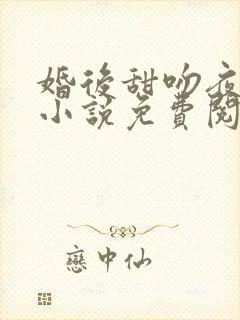 婚後甜吻夜
小說免費閱
戀中仙